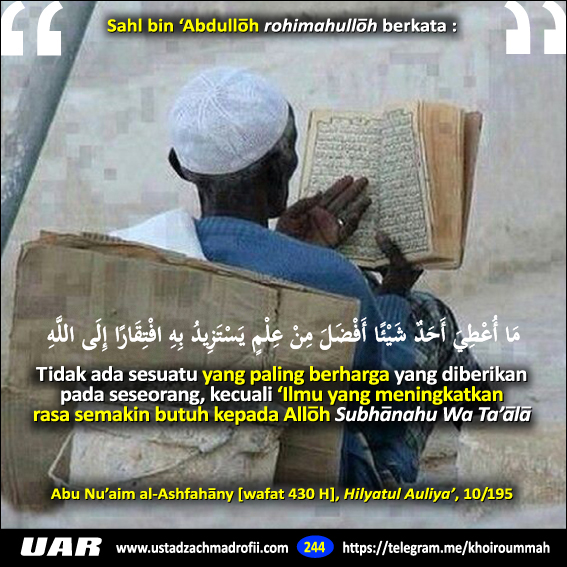 Sahl bin ‘Abdullōh rohimahullōh berkata :
مَا أُعْطِيَ أَحَدٌ شَيْئًا أَفْضَلَ مِنْ عِلْمٍ يَسْتَزِيدُ بِهِ افْتِقَارًا إِلَى اللَّهِ
Tidak ada sesuatu yang paling berharga yang diberikan
pada seseorang, kecuali ‘Ilmu yang meningkatkan
rasa semakin butuh kepada Allōh Subhānahu Wa Ta’ālā
Abu Nu’aim al-Ashfahāny [wafat 430 H], Hilyatul Auliya’, 10/195
UAR www.ustadzachmadrofii.com 244 https://telegram.me/khoiroummah